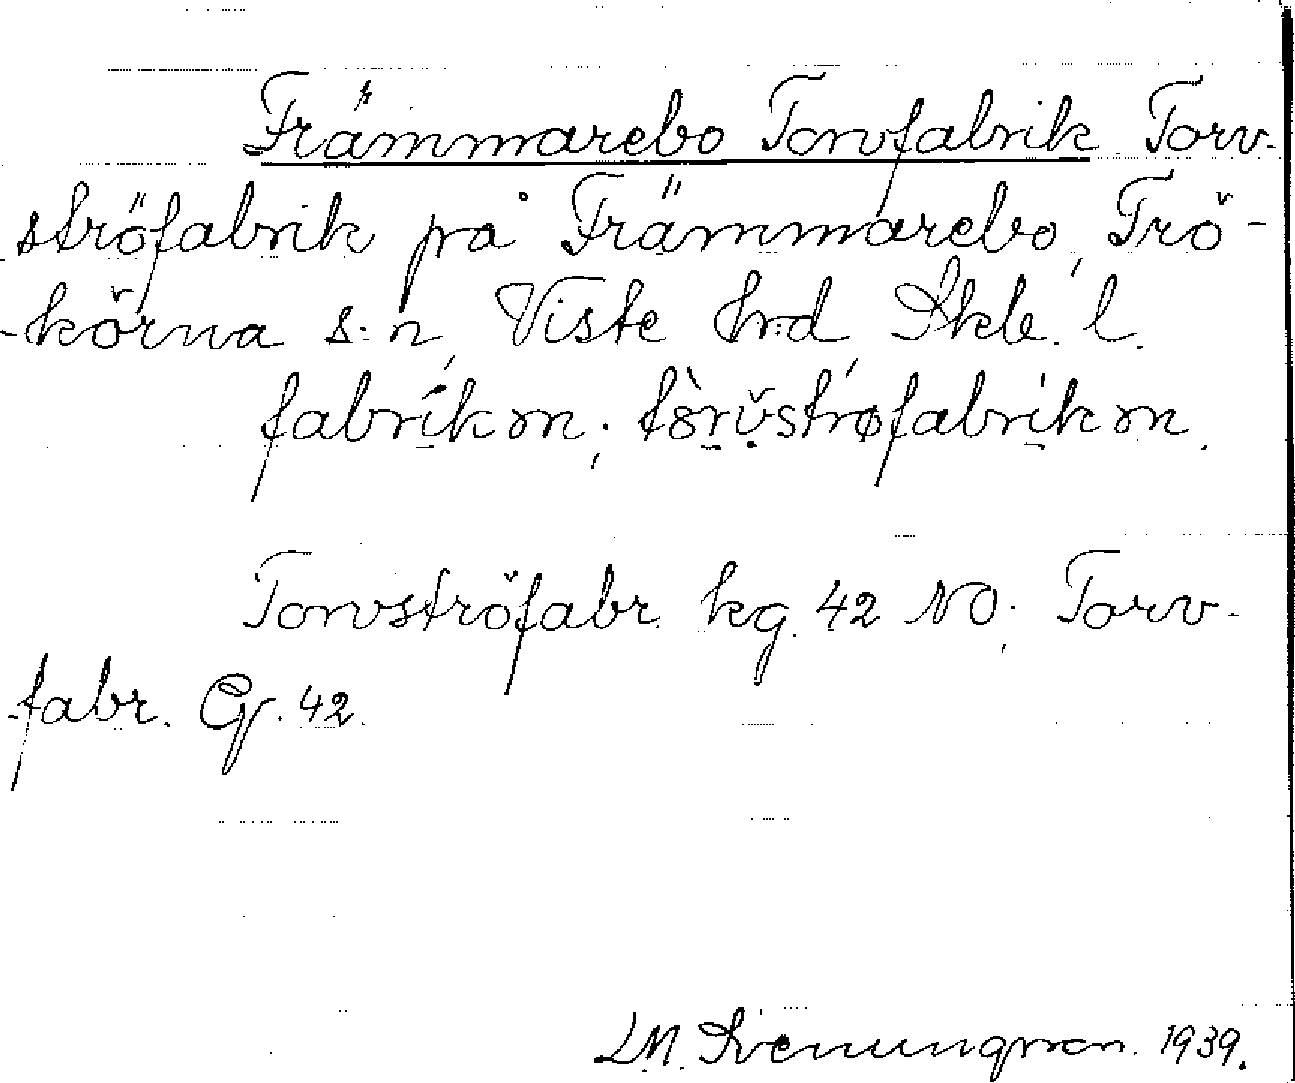 Främmarebo Torvfabrik Torv-
ströfabrik på Främmarebo, Trö-
-körna s:n, Viste hrd, Skb. l.
fabrikən; tòrv̆strøfabrikən.
Torvströfabr. kg. 42 NO; Torv-
-fabr. G. 42.
LM. Svenungsson. 1939.